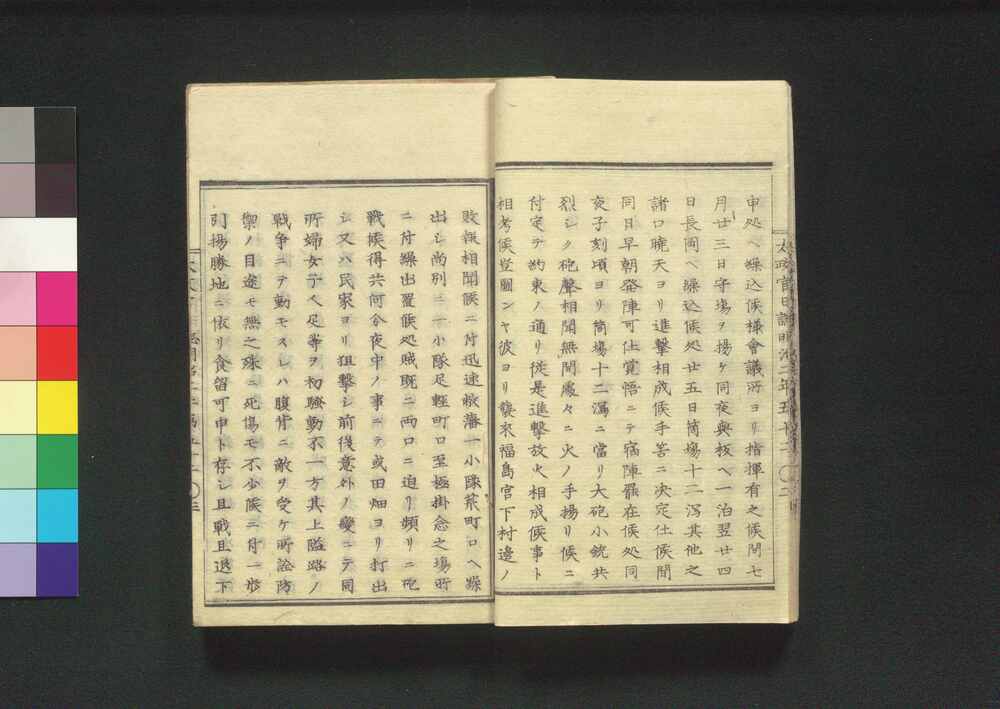 申処ヘ繰込候様會議所ヨリ指揮有之候間七
月廿三日守場ヲ揚ケ同夜與板ヘ一泊翌廿四
日長岡ヘ繰込候処廿五日筒場十二潟其他之
諸口曉天ヨリ進撃相成候手筈ニ决定仕候間
同日早朝發陣可仕覚悟ニテ宿陣罷在候処同
夜子刻頃ヨリ筒場十二潟ニ當リ大砲小銃共
烈シク砲聲相聞無間處々ニ火ノ手揚リ候ニ
付定テ約束ノ通リ従是進撃放火相成候事ト
相考候豈圖ンヤ彼ヨリ襲來福島宮下村邊ノ
敗報相聞候ニ付迅速敝藩一小隊荒町口ヘ繰
出シ尚別ニ一小隊足軽町口至極掛念之場所
ニ付繰出置候処賊既ニ両口ニ迫リ頻リニ砲
戦候得共何分夜中ノ事ニテ或田畑ヨリ打出
シ又ハ民家ヨリ狙撃シ前後意外ノ變ニテ同
所婦女子ヘ足等ヲ初騒動不一方其上隘路ノ
戦争ニテ動モスレハ腹背ニ敵ヲ受ケ所詮防
禦ノ目途モ無之殊ニ死傷モ不少候ニ付一ト先
引揚勝地ニ依リ食留可申ト存シ且戦且退下
太政官日誌明治二年